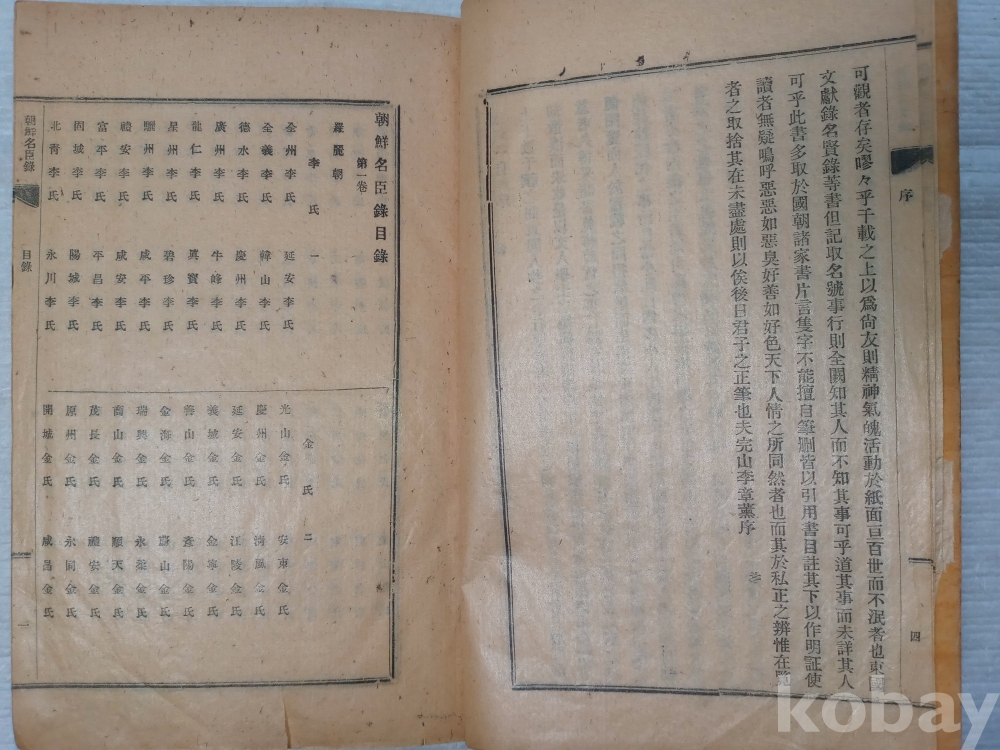 序
四
可觀者存矣嘐々乎千載之上以爲尙友則精神氣魄活動於紙面亘百世而不泯者也東國
文獻錄名賢錄等書但記取名號事行則全闕知其人而不知其事可乎道其事而未詳其人
可乎此書多取於國朝諸家書片言隻字不能擅自筆刪皆以引用書目註其下以作明証使
讀者無疑嗚呼惡惡如惡臭好善如好色天下人情之所同然者也而其於私正之辨惟在覽
者之取捨其在未盡處則以俟後日君子之正筆也夫完山李章薰序
朝鮮名臣錄目錄
第一卷
羅麗朝
李氏 一
全州李氏 延安李氏
全義李氏 韓山李氏
德水李氏 慶州李氏
廣州李氏 牛峰李氏
龍仁李氏 眞寶李氏
星州李氏 碧珍李氏
驪州李氏 咸平李氏
禮安李氏 咸安李氏
富平李氏 平昌李氏
固城李氏 陽城李氏
北靑李氏 永川李氏
金氏 二
光山金氏 安東金氏
慶州金氏 淸風金氏
延安金氏 江陵金氏
義城金氏 金寧金氏
善山金氏 彥陽金氏
金海金氏 蔚山金氏
瑞興金氏 永柔金氏
商山金氏 順天金氏
茂長金氏 禮安金氏
原州金氏 永同金氏
開城金氏 咸昌金氏
朝鮮名臣錄
目錄
一
kobay